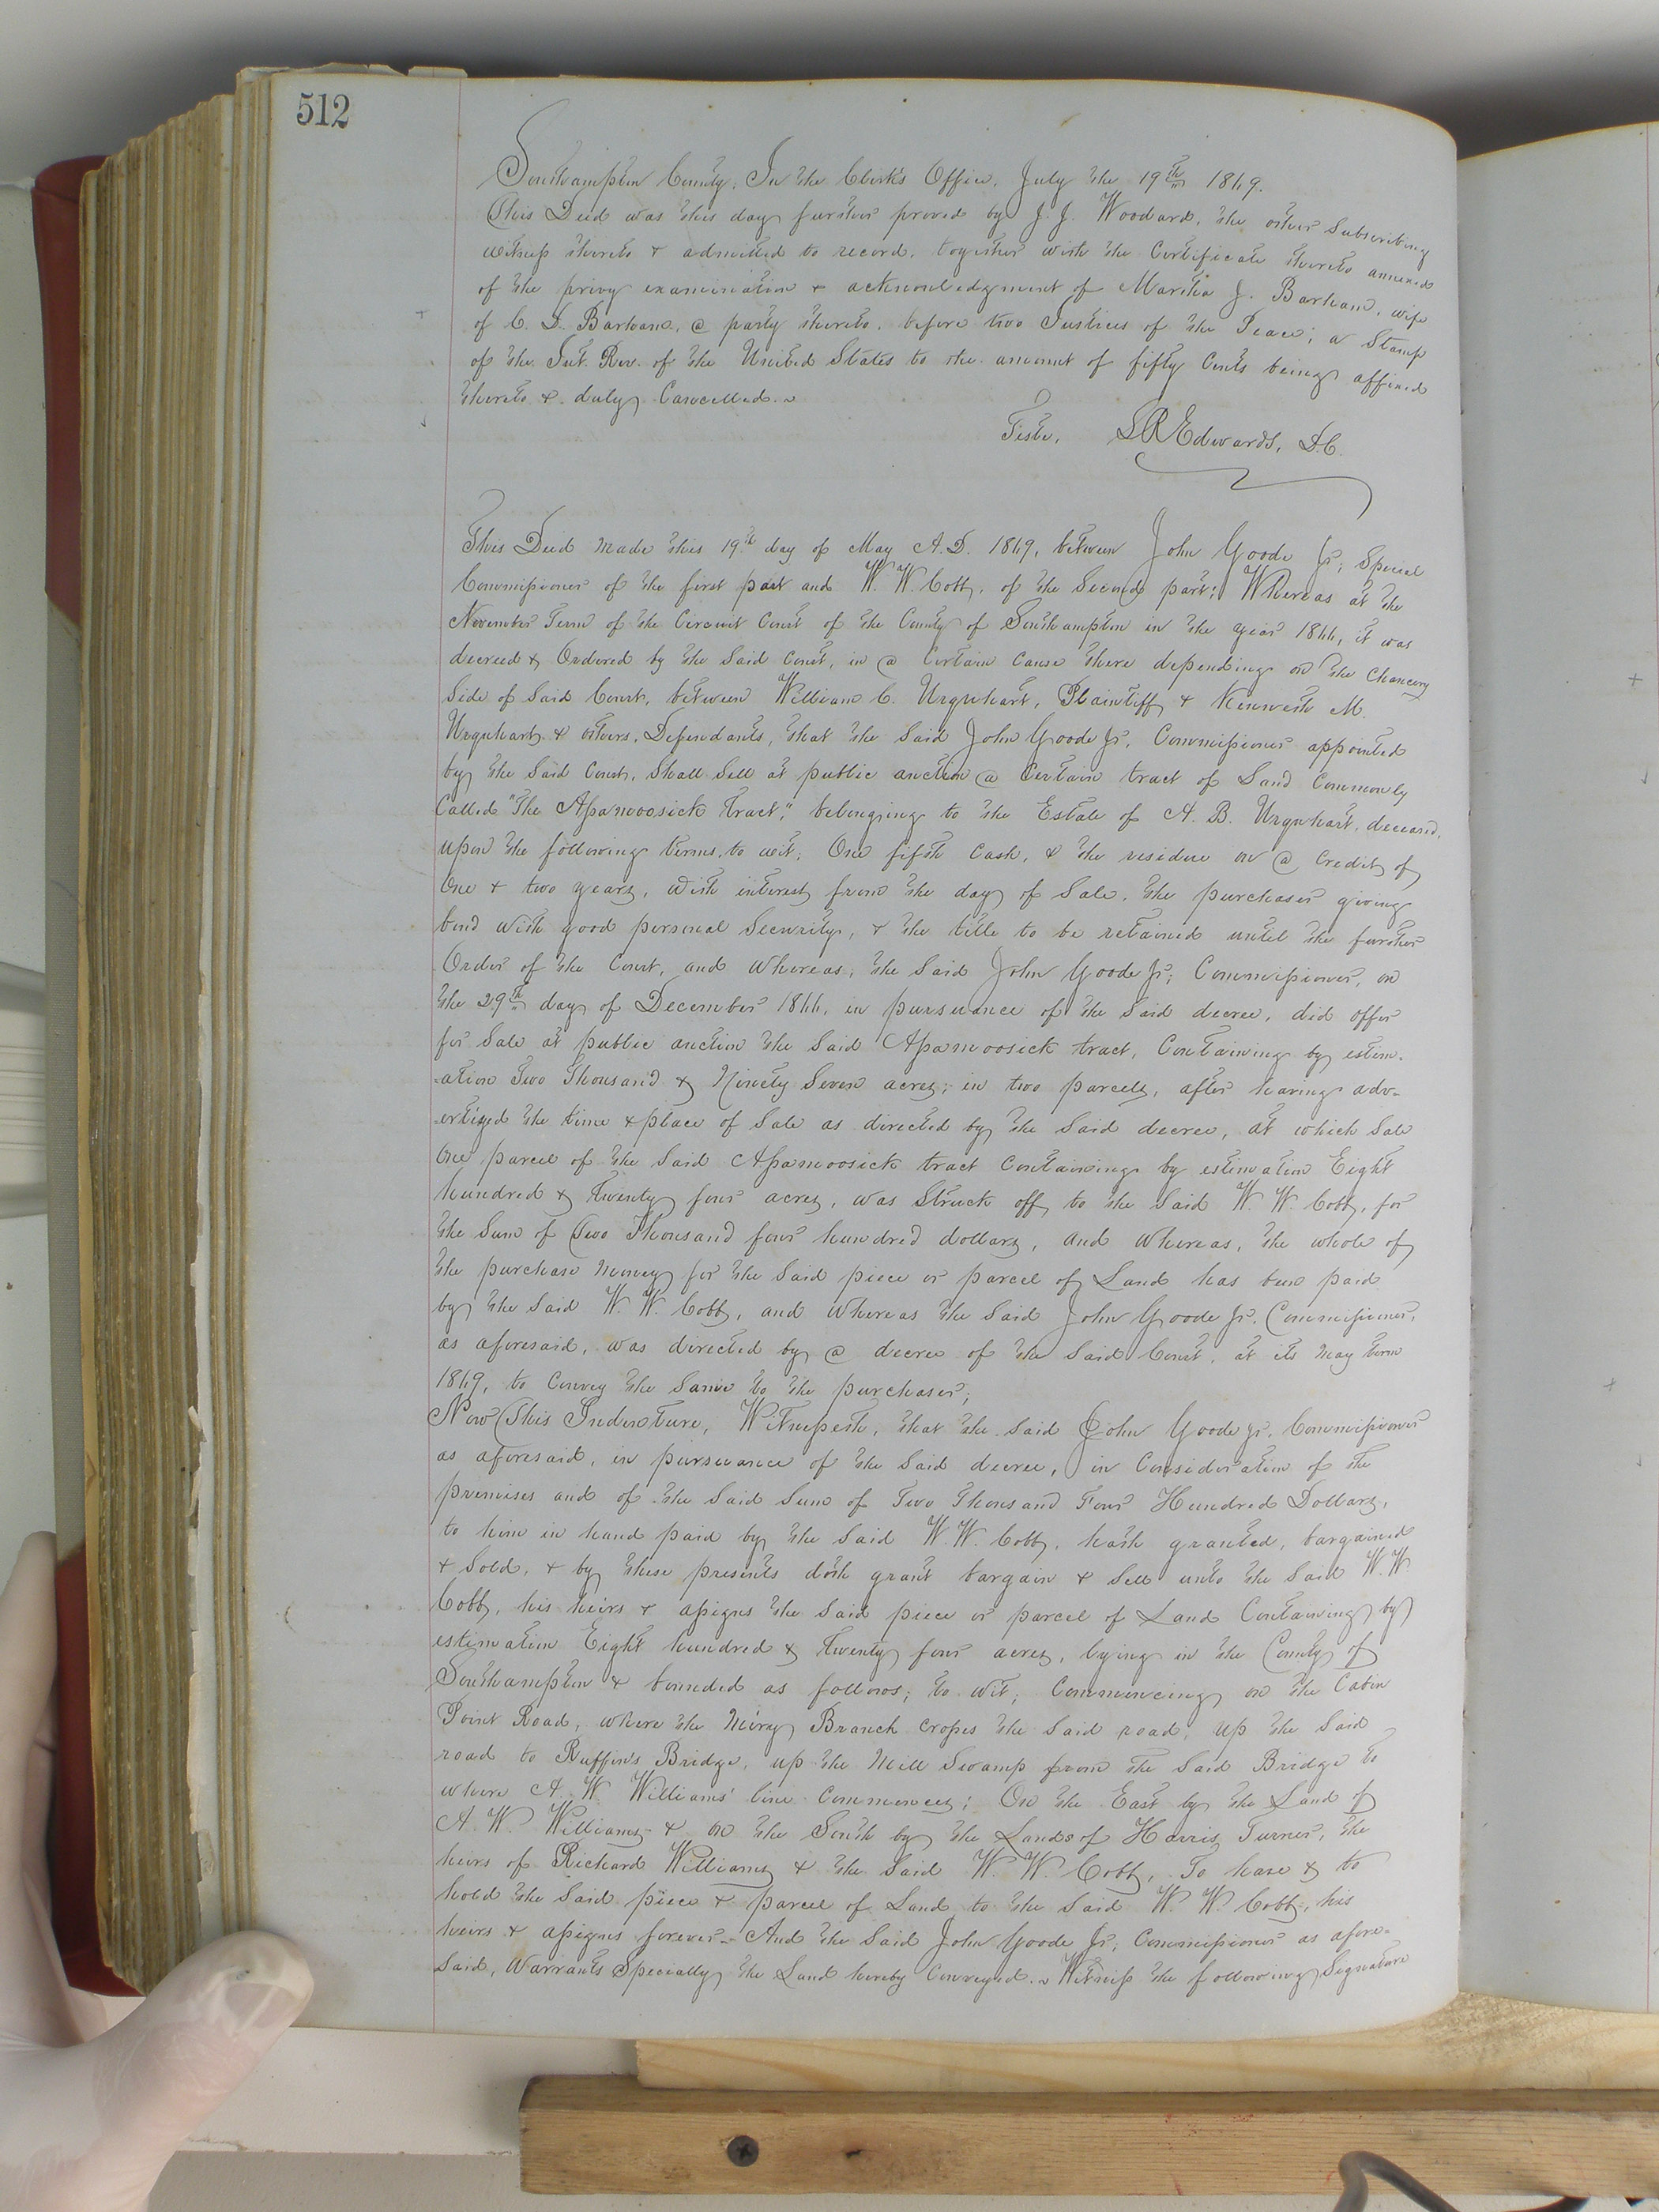 512
Southampton County; In the Clerk's Office, July the 19th 1869.
This Deed was this day further proved by J. J. Woodard, the other Subscribing
witness thereto & admitted to record, together with the Certificate thereto annexed
of the privy examination & acknowledgment of Martha J. Barham, wife
of C. D. Barham, a party thereto, before two Justices of the Peace; a Stamp
of the Int. Rev. of the United States to the amount of fifty Cents being affixed
thereto & duly Cancelled.
Teste, L R Edwards, D.C.
This Deed made this 19th day of May A.D. 1869, between John Goode Jr; Special
Commissioner of the first part and W. W. Cobb, of the Second part; Whereas at the
November Term of the Circuit Court of the County of Southampton in the year 1866, it was
decreed & Ordered by the said Court, in a Certain Cause there depending on the Chancery
Side of Said Court, between William C. Urquhart, Plaintiff & Kenneth M.
Urquhart & others, Defendants, that the said John Goode Jr, Commissioner appointed
by the said Court, Shall Sell at public auction a Certain tract of Land Commonly
Called "The Assamoosick tract," belonging to the Estate of A. B. Urquhart, deceased,
upon the following terms, to wit; One fifth Cash, & the residue on a Credit of
One & two years, with interest from the day of Sale, the purchaser giving
bond with good personal Security, & the title to be retained until the further
Order of the Court, and Whereas, the said John Goode Jr; Commissioner, on
the 29th day of December 1866, in pursuance of the said decree, did offer
for Sale at public auction the said Assamoosick tract, Containing by estim-
-ation Two Thousand & Ninety Seven acres; in two parcels, after having adv-
-ertized the time & place of Sale as directed by the said decree, at which Sale
One parcel of the said Assamoosick tract Containing by estimation Eight
hundred & twenty four acres, was Struck off to the said W. W. Cobb, for
the Sum of Two Thousand four hundred dollars, and Whereas, the whole of
the purchase Money for the said piece or parcel of Land has been paid
by the said W. W. Cobb, and Whereas the said John Goode Jr. Commissioner,
as aforesaid, was directed by a decree of the said Court, at its May term
1869, to Convey the Same to the purchaser;
Now This Indenture, Witnesseth, that the said John Goode Jr. Commissioner
as aforesaid, in pursuance of the said decree, in Consideration of the
premises and of the said Sum of Two Thousand Four Hundred Dollars,
to him in hand paid by the said W. W. Cobb, hath granted, bargained
& Sold, & by these presents doth grant bargain & Sell unto the said W. W.
Cobb, his heirs & assigns the said piece or parcel of Land Containing by
estimation Eight hundred & twenty four acres, lying in the County of
Southampton & bounded as follows; to wit; Commencing on the Cabin
Point Road, where the Miry Branch Crosses the said road, up the said
road to Ruffin's Bridge, up the Mill Swamp from the said Bridge to
where A. W. Williams' line Commences; On the East by the Land of
A. W. Williams & on the South by the Lands of Harris Turner, the
heirs of Richard Williams & the said W. W. Cobb, To have & to
hold the said piece & parcel of Land to the said W. W. Cobb, his
heirs & assigns forever. And the said John Goode Jr; Commissioner as afore-
said, Warrants Specially the Land hereby Conveyed. Witness the following Signature